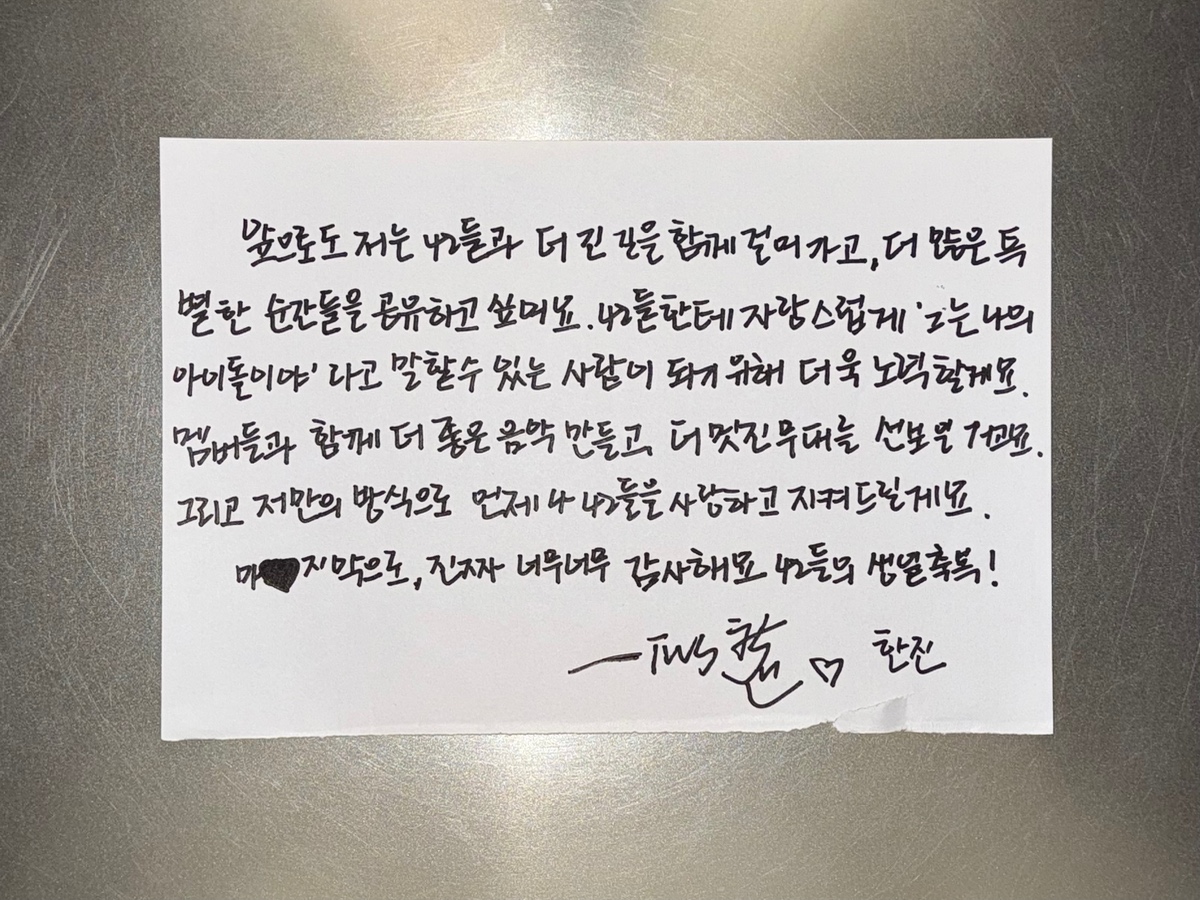 앞으로도 저는 42들과 더 긴 길을 함께 걸어가고, 더 많은 특
별한 순간들을 공유하고 싶어요. 42들한테 자랑스럽게 '그는 나의
아이돌이야' 라고 말할 수 있는 사람이 되기 위해 더욱 노력할게요.
멤버들과 함께 더 좋은 음악 만들고, 더 멋진 무대를 선보일 거고요.
그리고 저만의 방식으로 언제나 42들을 사랑하고 지켜드릴게요.
마지막으로, 진짜 너무너무 감사해요 42들의 생일축복!
— TWS ♡ 한진